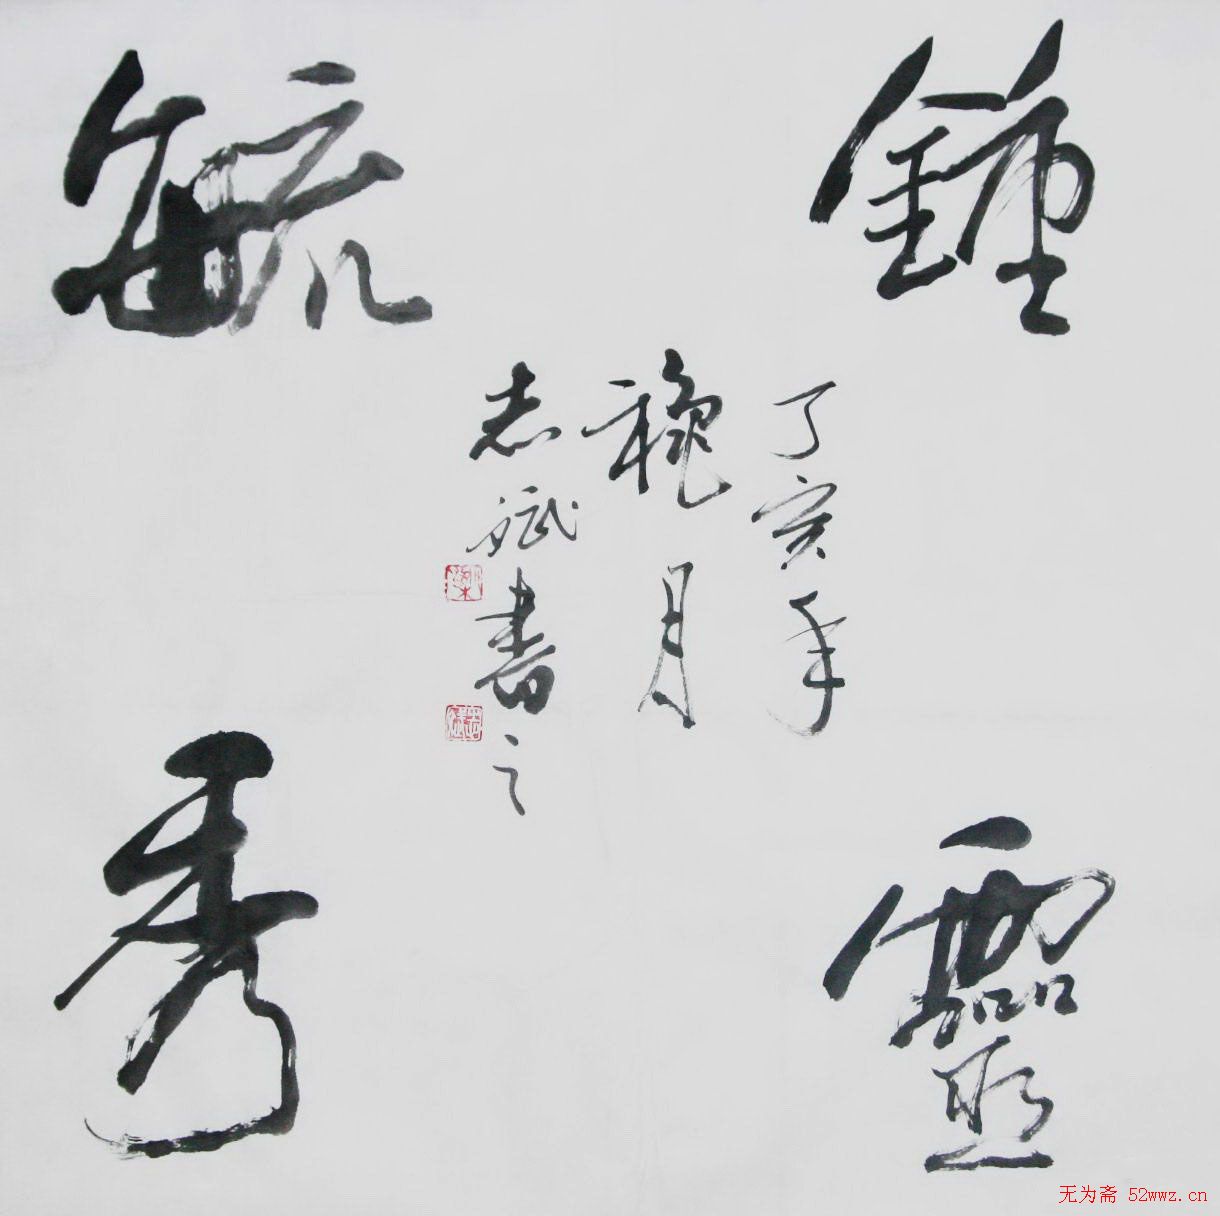 鍾靈
丁亥年
穐月
志斌書之
毓秀
无为斋 52wwz.cn